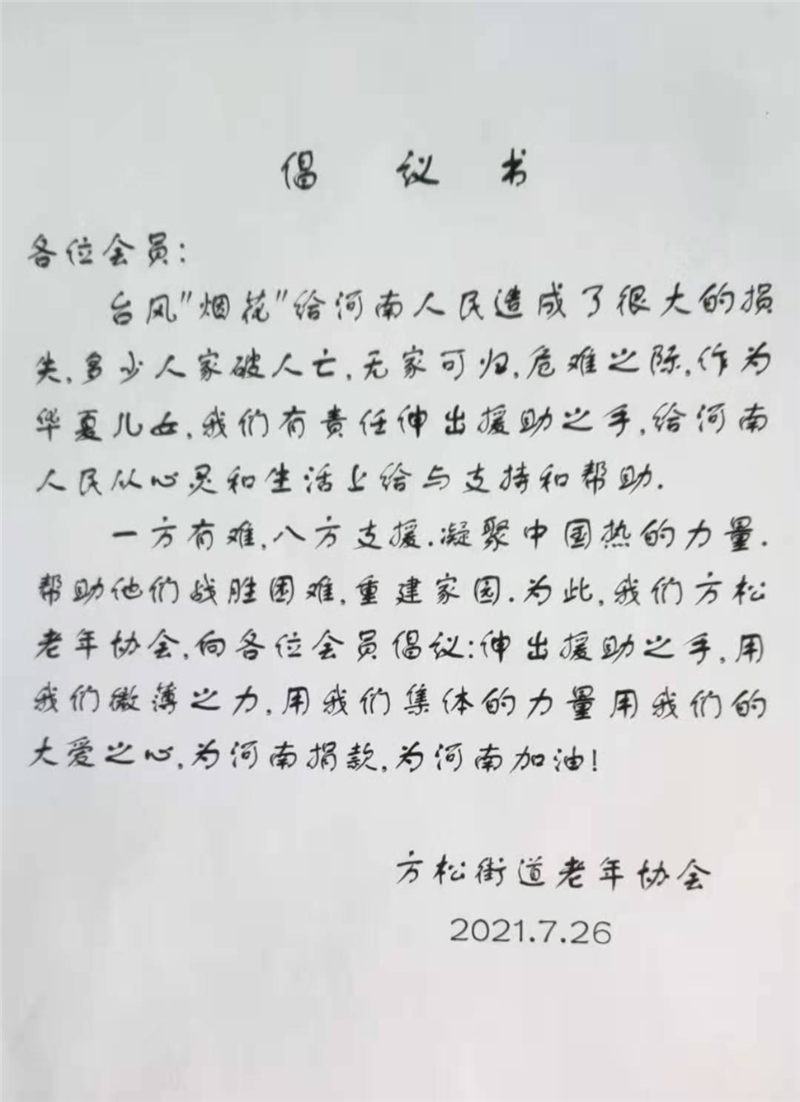 倡 议 书
各位会员:
台风"烟花"给河南人民造成了很大的损
失,多少人家破人亡,无家可归,危难之际,作为
华夏儿女,我们有责任伸出援助之手,给河南
人民从心灵和生活上给与支持和帮助.
一方有难,八方支援.凝聚中国热的力量.
帮助他们战胜困难,重建家园.为此,我们方松
老年协会,向各位会员倡议:伸出援助之手,用
我们微薄之力,用我们集体的力量用我们的
大爱之心,为河南捐款,为河南加油!
方松街道老年协会
2021.7.26